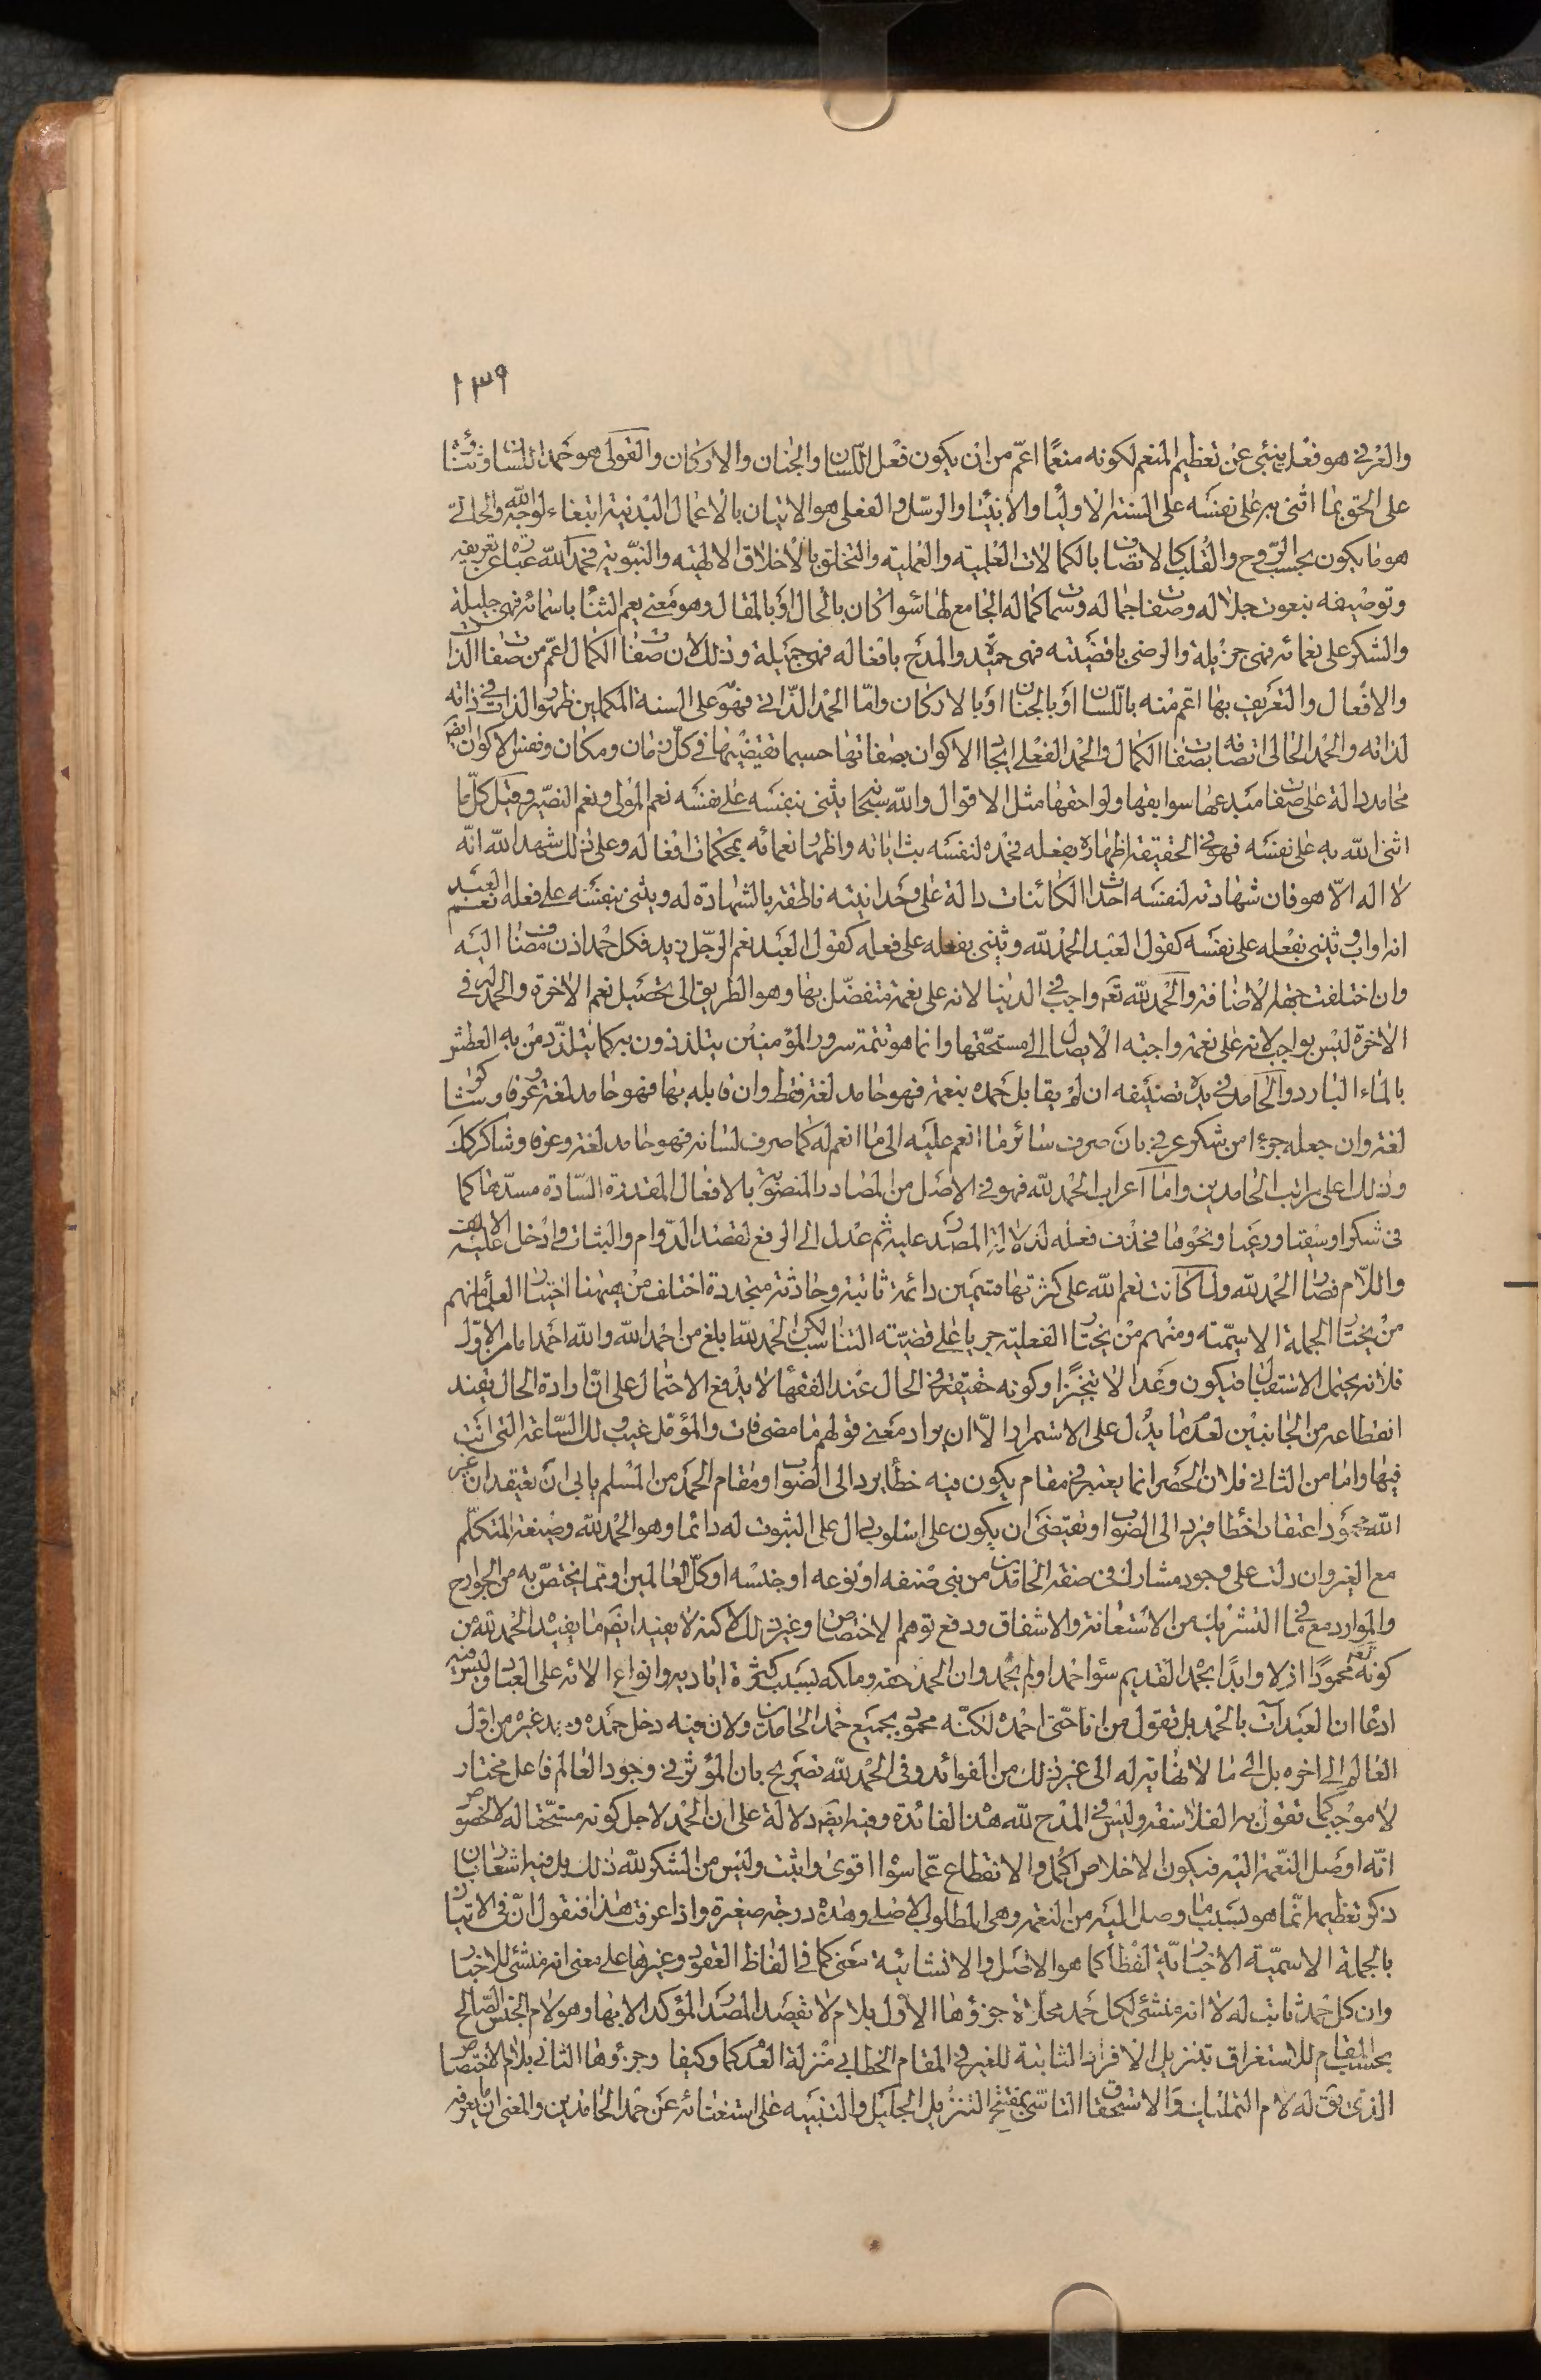 ١٣٩
والعرفي هو فعل ينبئ عن تعظيم المنعم لكونه منعما اعمّ من ان يكون فعل اللسان والجنان والاركان والقولى هو حمد اللسان وثنائه
على الحق بما اثنى به على نفسه على السنة الاولياء والانبياء والرسل والفعلى هو الاتيان بالاعمال البدنية ابتغاء لوجه الله والحالىّ
هو ما يكون بحسب الرّوح والقلب كالاتصاف بالكمالات العلمية والعملية والتخلق بالاخلاق الالهية والنبوية فحمد الله عبارة عن تعريفه
وتوصيفه بنعوت جلاله وصفات جماله وسمات كماله الجامع لها سواء كان بالحال او بالمقال وهو معنى يعم الثناء باسمائه فهى جليلة
والشكر على نعمائه فهى جزيلة والرضى باقضيته فهى حميدة والمدح بافعاله فهى جميلة وذلك لان صفات الكمال اعمّ من صفات الذات
والافعال والتعريف بها اعم منه باللسان او بالجنان او بالاركان وامّا الحمد الذّاتى فهو على السنة المكملين ظهور الذات فى ذاته
لذاته والحمد الحالى اتصافه بصفات الكمال والحمد الفعلى ايجاد الاكوان بصفاتها حسبما تقتضيها فى كلّ زمان ومكان ونفس الاكوان ايضا
محامد دالة على صفات مبدعها سوابقها ولواحقها مثل الاقوال والله سبحانه يثنى بنفسه على نفسه نعم المولى ونعم النصير وقيل كلّ ما
اثنى الله به على نفسه فهو فى الحقيقة اظهاره بفعله فحمده لنفسه بث اياته واظهار نعمائه بمحكمات افعاله وعلى ذلك شهد الله انّه
لا اله الّا هو فان شهادته لنفسه احداث الكائنات دالة على وحدانيته ناطقة بالشهادة له ويثنى بنفسه على فعله نعم العبد
انه اواب ويثنى بفعله على نفسه كقول العبد الحمد لله ويثنى بفعله على فعله كقول العبد نعم الرّجل زيد فكل حمد اذن مضاف اليه
وان اختلفت جهة الاضافة والحمد لله تعم واجب فى الدنيا لانه على نعمة متفضّل بها وهو الطريق الى تحصيل نعم الاخرة والحمد له فى
الاخرة ليس بواجب لانه على نعمة واجبة الايصال الى مستحقها وانما هو تتمة سرور المؤمنين يتلذذون به كما يتلذّذ من به العطش
بالماء البارد والحامد فى بدء تصنيفه ان لم يقابل حمده بنعمة فهو حامد لغة فقط وان قابله بها فهو حامد لغة وعرفا وشاكر
لغة وان جعله جزء امن شكر عرفى بان صرف سائر ما انعم عليه الى ما انعم له كما صرف لسانه فهو حامد لغة وعرفا وشاكر كذلك
وذلك اعلى مراتب الحامدين واما اعراب الحمد لله فهو فى الاصل من المصادر المنصوبة بالافعال المقدرة السّادة مسدّها كما
فى شكرا وسقيا ورعيا ونحوها فحذف فعله لدلالة المصدر عليه ثم عدل الى الرفع لقصد الدّوام والثبات وادخل عليه الالف
واللّام فصار الحمد لله ولما كانت نعم الله على كثرتها قسمين دائمة ثابتة وحادثة متجددة اختلف من ههنا اختيار العلماء منهم
من يختار الجملة الاسمّية ومنهم من يختار الفعلية جريا على قضيّة التناسب لكن الحمد لله ابلغ من احمد الله والله احمد اما من الاوّل
فلانه يحتمل الاستقبال فيكون وعدا لا تنجيزا وكونه حقيقة فى الحال عند الفقهاء لا يدفع الاحتمال على انّ ارادة الحال يفيد
انقطاعه من الجانبين لعدم ما يدّل على الاستمرار الّا ان يراد معنى قولهم ما مضى فات والمؤمّل غيب ولك السّاعة التى انت
فيها واما من الثانى فلان الحصر انما يعتبر فى مقام يكون فيه خطأ يرد الى الصواب ومقام الحمد من المسلم يابى ان يعتقد ان غير
الله محمود اعتقادا خطأ فيرد الى الصواب وتقتضى ان يكون على اسلوب دال على الثبوت له دائما وهو الحمد لله وصيغة المتكلّم
مع الغير وان دلت على وجود مشارك فى صفة الحامدين من بنى صنفه او نوعه او جنسه او كلّ العالمين او بما يختصّ به من الجوارح
والموارد مع ما فى التشريك من الاستعانة والاشفاق ودفع توهم الاختصاص وغير ذلك لاكنه لا يفيد ايضا ما يفيد الحمد لله من
كونه تعه محمودًا ازلا وابدًا بحمد القديم سواء حمد اولم يحمد وان الحمد حقه وملكه بسبب كثرة اياديه وانواع الائه على العباد وليس فيه
ادعاء ان العبد آت بالحمد بل تقول من انا حتّى احمده لكنّه محمود بجميع حمد الحامدين ولان فيه دخل حمده وحمد غيره من اول
العالم الى اخره بل الى ما لا نهاية له الى غير ذلك من الفوائد وفى الحمد لله تصريح بان المؤثر فى وجود العالم فاعل مختار
لا موجب كما تقول به الفلاسفة وليس فى المدح لله هذا الفائدة وفيه ايضا دلالة على ان الحمد لاجل كونه مستحقا له لا لخصوص
انّه اوصل النّعمة اليه فيكون الاخلاص اكمل والانقطاع عمّا سواه اقوى واثبت وليس من الشكر لله ذلك بل فيه اشعار بان
ذكر تعظيمه انّما هو بسبب ما وصل اليه من النعمة وهى المطلوب الاصلى وهذه درجة صغيرة واذا عرفت هذا فنقول انّ فى الاتيان
بالجملة الاسمّية الاخبارية لفظا كما هو الاصل والانشائية معنى كما فى الفاظ العقود وغيرها على معنى انه منشئ للاخبار
وان كل حمد ثابت له لا انه منشئ لكل حمد محلاة جزؤها الاول بلام لا تقصد المصدر المؤكد الا بها وهو لام الجنس الصالح
بحسب المقام للاستغراق بتنزيل الافراد الثابتة للغير فى المقام الخطابى منزلة العدم كما وكيفا وجزؤها الثانى بلام الاختصاص
الذى يق له لام التمليك والاستحقاق التاسّى بمفتتح التنزيل الجليل والتنبيه على استغنائه عن حمد الحامدين والمعنى ان يعرفه